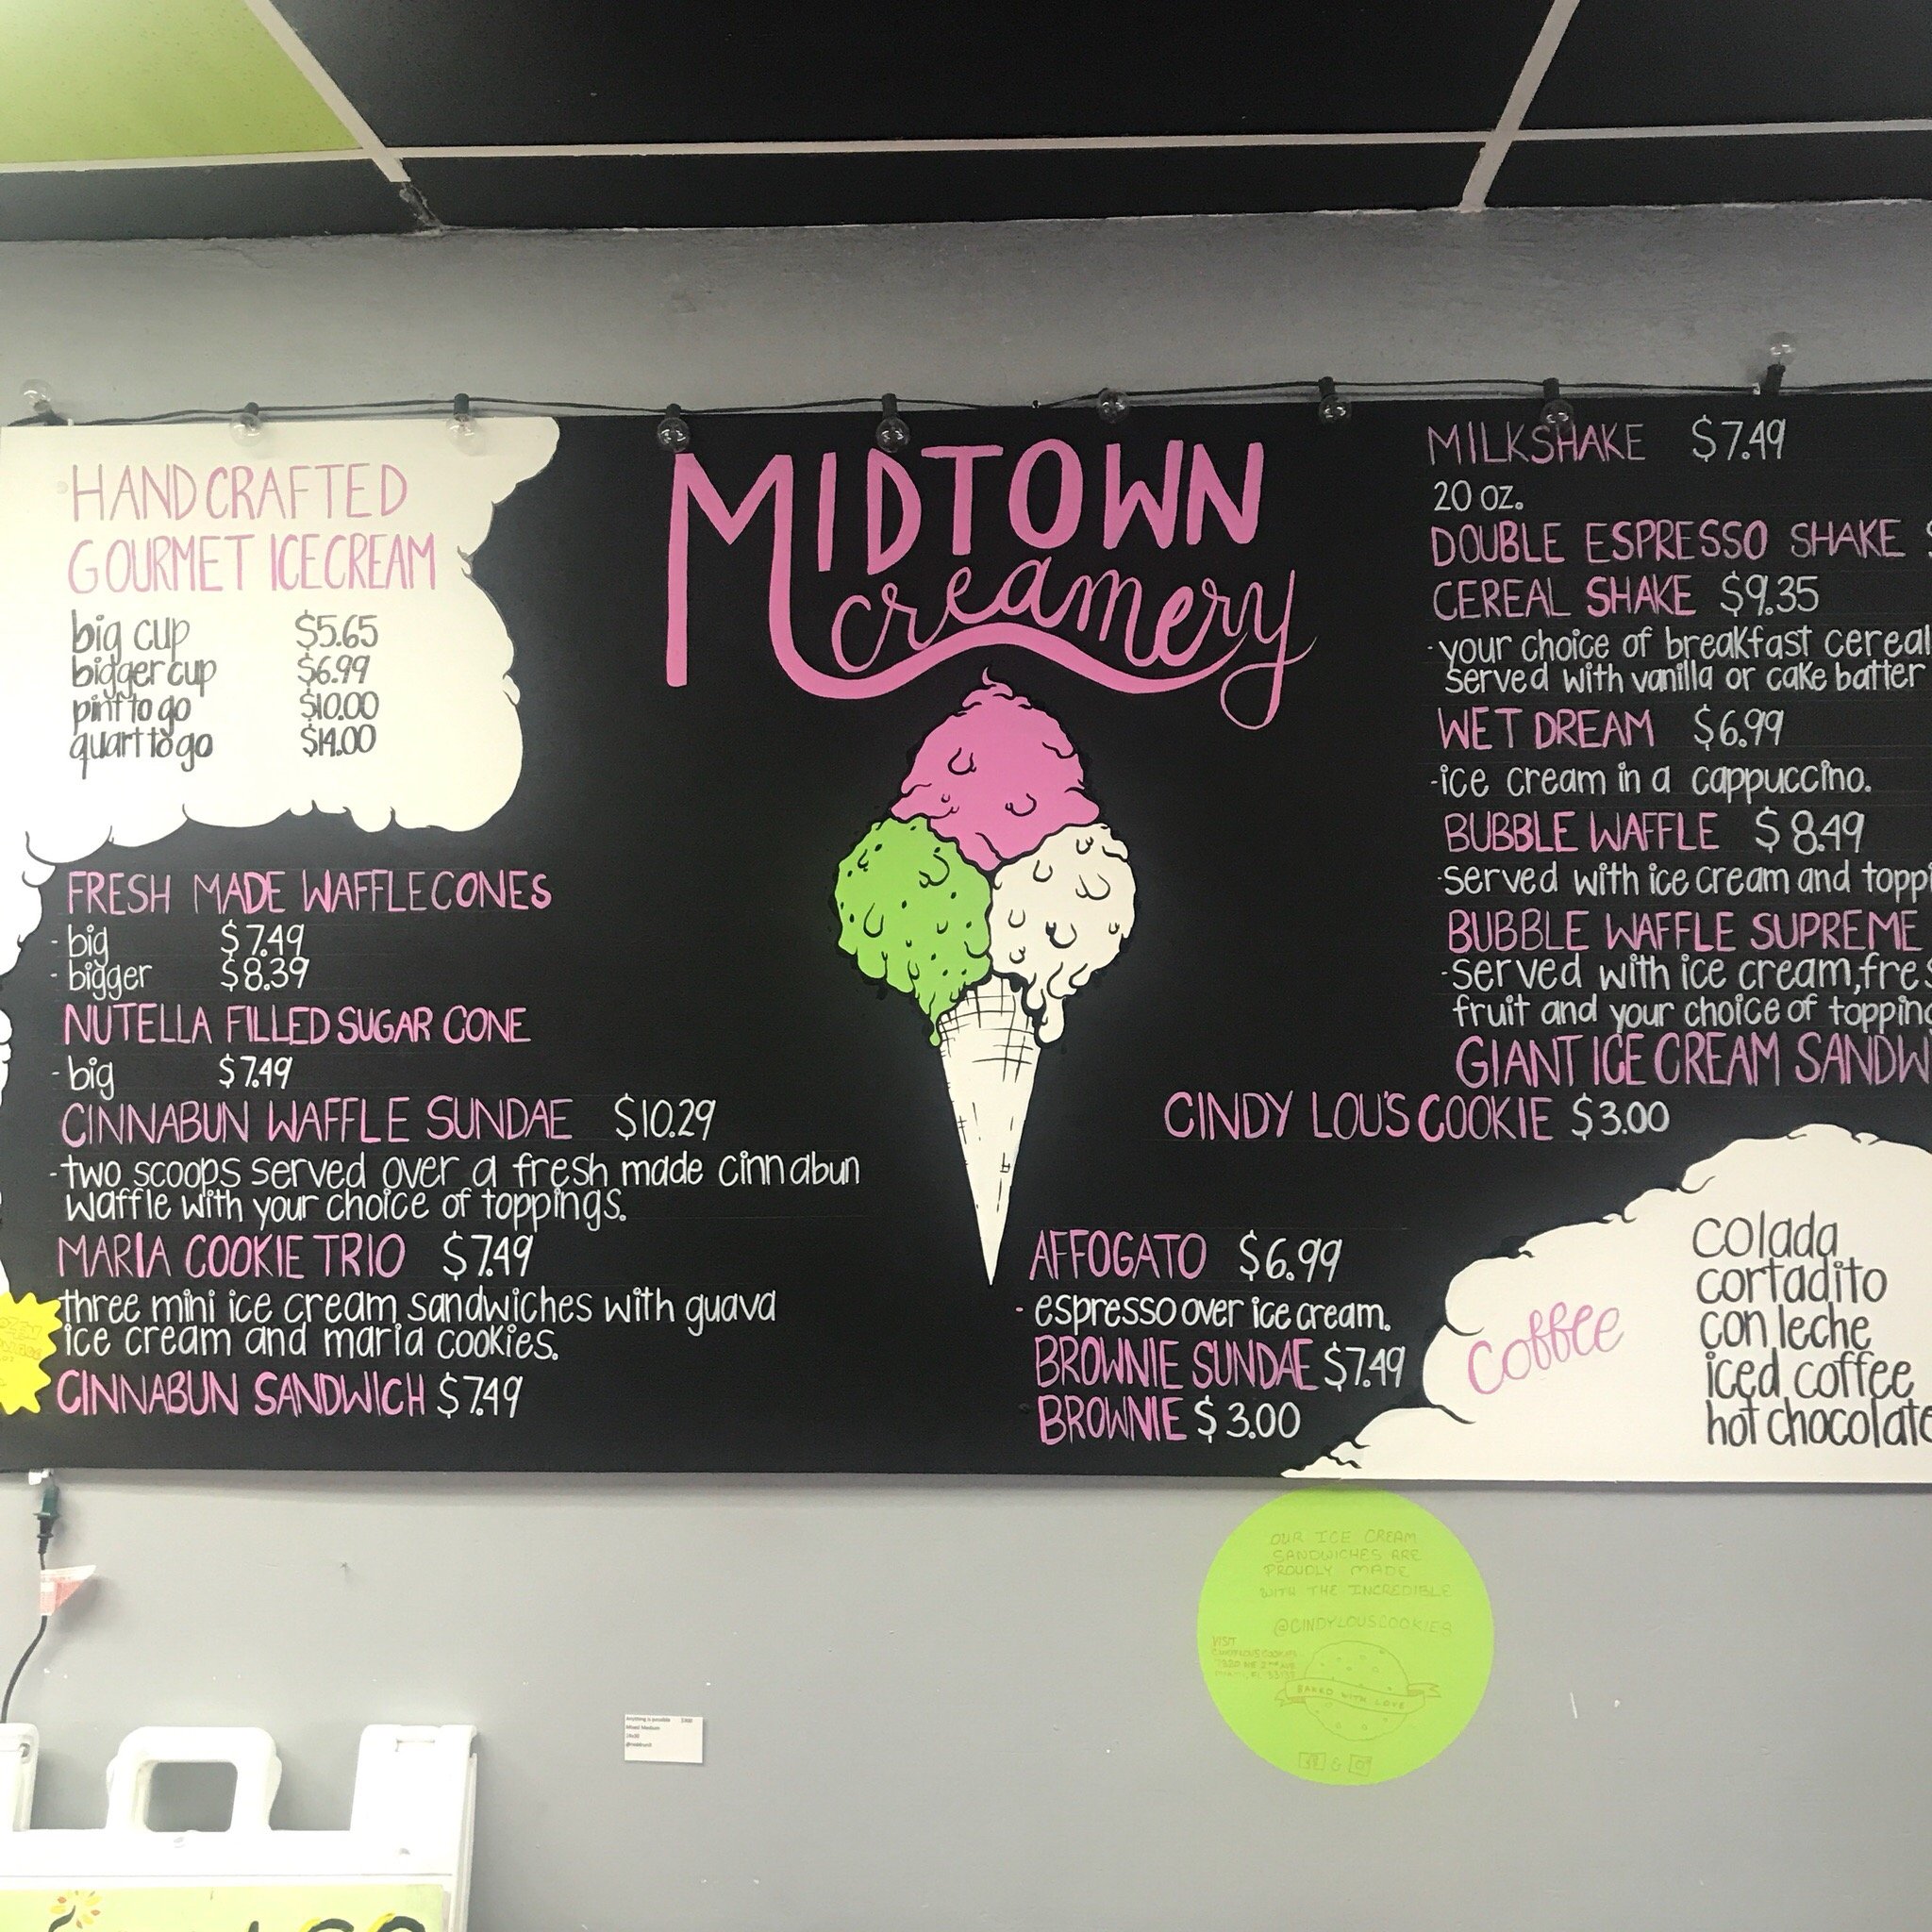 MIDTOWN
creamery
HANDCRAFTED
GOURMET ICECREAM
big cup $5.65
bigger cup $6.99
pint to go $10.00
quart to go $14.00
FRESH MADE WAFFLECONES
- big $7.49
- bigger $8.39
NUTELLA FILLED SUGAR CONE
- big $7.49
CINNABUN WAFFLE SUNDAE $10.29
- two scoops served over a fresh made cinnabun
waffle with your choice of toppings.
MARIA COOKIE TRIO $7.49
three mini ice cream sandwiches with guava
ice cream and maria cookies.
CINNABUN SANDWICH $7.49
MILKSHAKE $7.49
20 oz.
DOUBLE ESPRESSO SHAKE
CEREAL SHAKE $9.35
- your choice of breakfast cereal
served with vanilla or cake batter
WET DREAM $6.99
- ice cream in a cappuccino.
BUBBLE WAFFLE $8.49
- served with ice cream and
BUBBLE WAFFLE SUPREME
- served with ice cream,
fruit and your choice of
GIANT ICE CREAM
CINDY LOU'S COOKIE $3.00
AFFOGATO $6.99
- espresso over ice cream.
BROWNIE SUNDAE $7.49
BROWNIE $3.00
coffee
colada
cortadito
con leche
iced coffee
hot chocolate
OUR ICE CREAM
SANDWICHES ARE
PROUDLY MADE
WITH THE INCREDIBLE
@CINDYLOUSCOOKIES
VISIT
BAKED WITH LOVE
&
Anything is possible
Mixed Medium